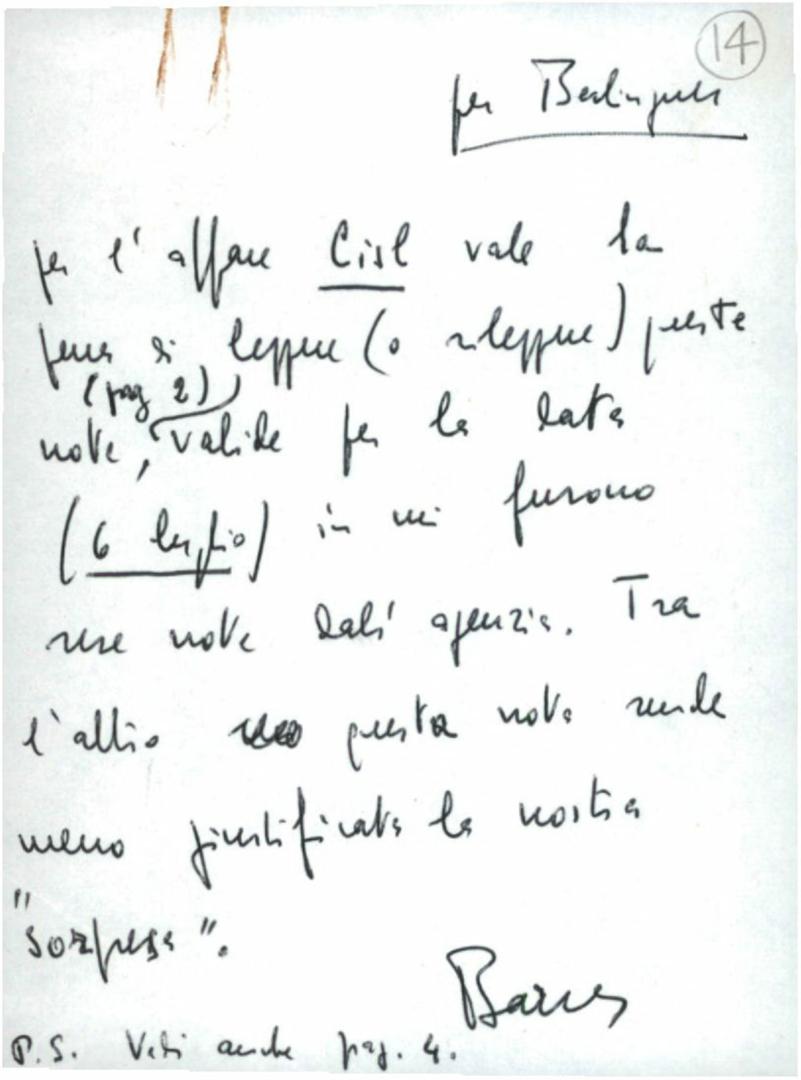 14
per Berlinguer
per l'affare Cisl vale la
pena di leggere (o rileggere) queste
(pag 2)
note, valide per la data
(6 luglio) in cui furono
rese note dall'agenzia. Tra
l'altro questa nota rende
meno giustificata la nostra
"sorpresa".
Barca
P.S. Vedi anche pag. 4.